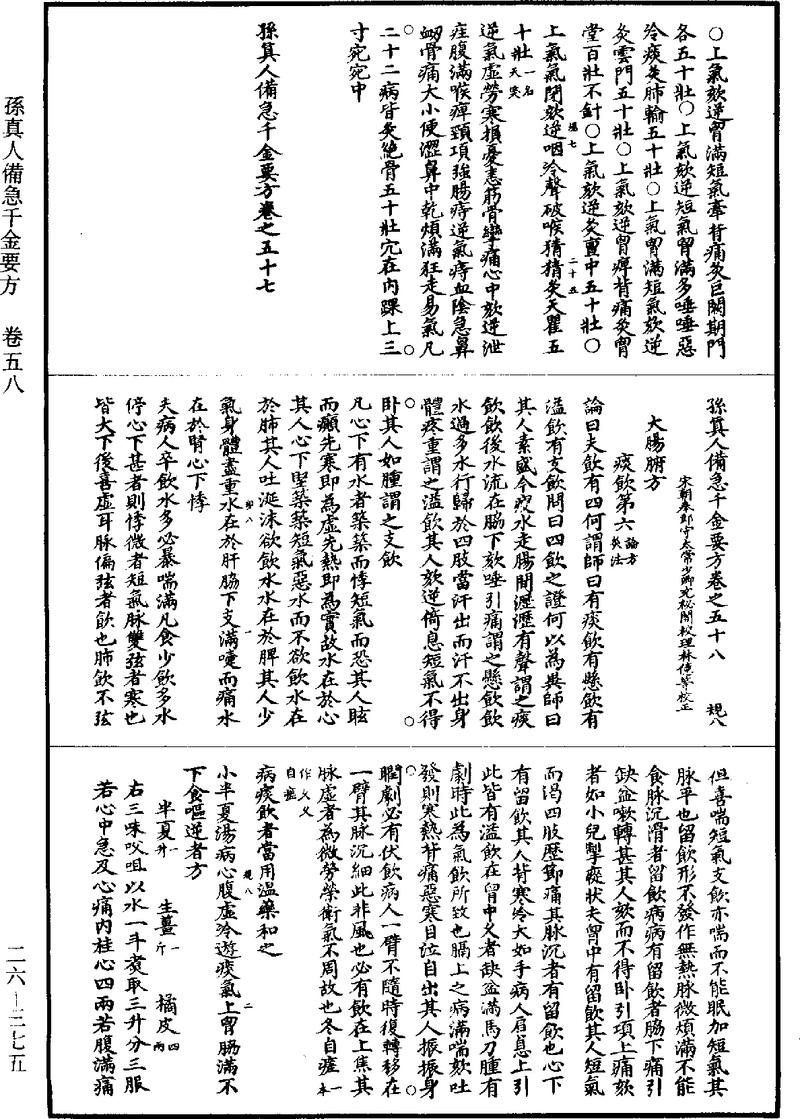 孫真人備急千金要方　卷五八
二六—三七五
○上氣欬逆胷滿短氣牽背痛灸巨闕期門
各五十壯○上氣欬逆短氣胷滿多唾唾惡
冷痰灸肺輸五十壯○上氣胷滿短氣欬逆
灸雲門五十壯○上氣欬逆胷痺背痛灸胷
堂百壯不針○上氣欬逆灸亶中五十壯○
上氣氣閉欬逆咽冷聲破喉猜猜灸天瞿五
十壯一名天突
逆氣虛勞寒損憂恚筋骨攣痛心中欬逆泄
疰腹滿喉痺頸項強腸痔逆氣痔血陰急鼻
衂骨痛大小便澀鼻中乾煩滿狂走易氣凡
二十二病皆灸絶骨五十壯穴在內踝上三
寸宛宛中
孫真人備急千金要方卷之五十七
孫真人備急千金要方卷之五十八　規八
宋朝奉郎守太常少卿充秘閣校理林億等校正
大腸腑方
痰飲第六論方灸法
論曰夫飲有四何謂師曰有痰飲有懸飲有
溢飲有支飲問曰四飲之證何以為異師曰
其人素盛今瘦水走腸間瀝瀝有聲謂之痰
飲飲後水流在脇下欬唾引痛謂之懸飲飲
水過多水行歸於四肢當汗出而汗不出身
體疼重謂之溢飲其人欬逆倚息短氣不得
卧其人如腫謂之支飲
凡心下有水者築築而悸短氣而恐其人眩
而癲先寒即為虛先熱即為實故水在於心
其人心下堅築築短氣惡水而不欲飲水在
於肺其人吐涎沫欲飲水水在於脾其人少
氣身體盡重水在於肝脇下支滿嚏而痛水
在於腎心下悸
夫病人卒飲水多必暴喘滿凡食少飲多水
停心下甚者則悸微者短氣脉雙弦者寒也
皆大下後喜虛耳脉偏弦者飲也肺飲不弦
但喜喘短氣支飲亦喘而不能眠加短氣其
脉平也留飲形不發作無熱脉微煩滿不能
食脉沉滑者留飲病病有留飲者脇下痛引
缺盆嗽轉甚其人欬而不得卧引項上痛欬
者如小兒掣瘲狀夫胷中有留飲其人短氣
而渴四肢歷節痛其脉沉者有留飲也心下
有留飲其人背寒冷大如手病人肩息上引
此皆有溢飲在胷中久者缺盆滿馬刀腫有
劇時此為氣飲所致也膈上之病滿喘欬吐
發則寒熱背痛惡寒目泣自出其人振振身
瞤劇必有伏飲病人一臂不隨時復轉移在
一臂其脉沉細此非風也必有飲在上焦其
脉虛者為微勞榮衛氣不周故也冬自瘥一本作久久自瘥
病痰飲者當用温藥和之
小半夏湯病心腹虛冷遊痰氣上胷脇滿不
下食嘔逆者方
半夏一升　生薑一斤　橘皮四兩
右三味㕮咀以水一斗煮取三升分三服
若心中急及心痛内桂心四兩若腹滿痛